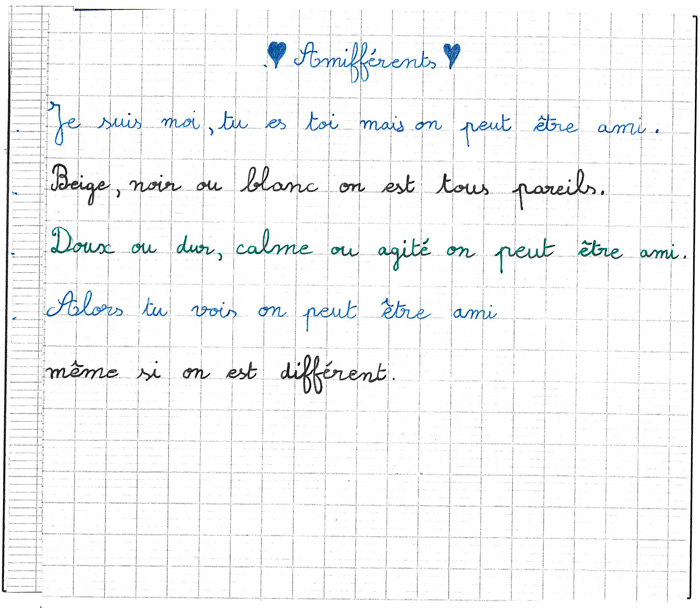 ♥ Amifférents ♥
Je suis moi, tu es toi mais on peut être ami.
Beige, noir ou blanc on est tous pareils.
Doux ou dur, calme ou agité on peut être ami.
Alors tu vois on peut être ami
même si on est différent.